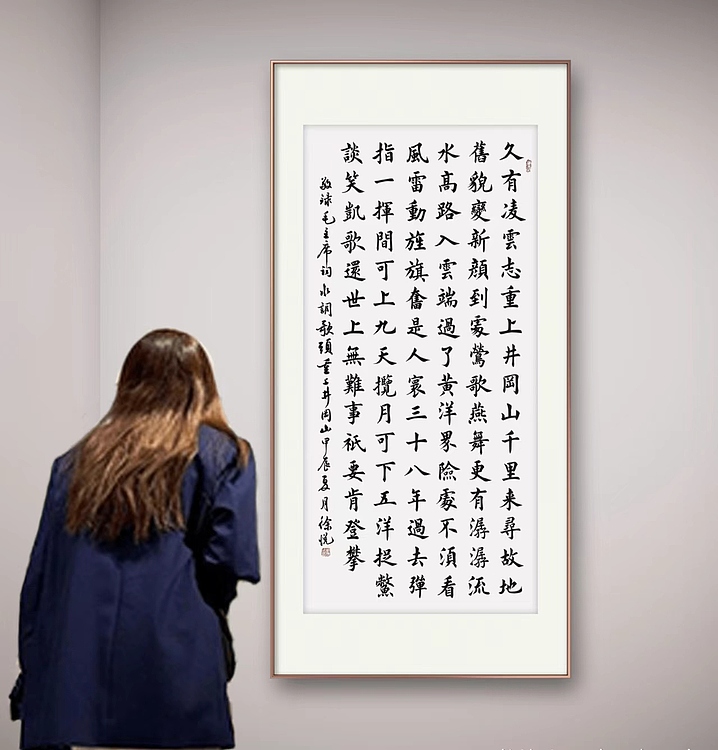 久有凌雲志重上井岡山千里来尋故地
舊貌變新顔到處鶯歌燕舞更有潺潺流
水髙路入雲端過了黄洋界險處不湏看
風雷動旌旗奮是人寰三十八年過去彈
指一揮間可上九天攬月可下五洋捉鱉
談笑凱歌還世上無難事祇要肯登攀
敬錄毛主席词水調歌頭重上井岡山甲辰夏月徐悦